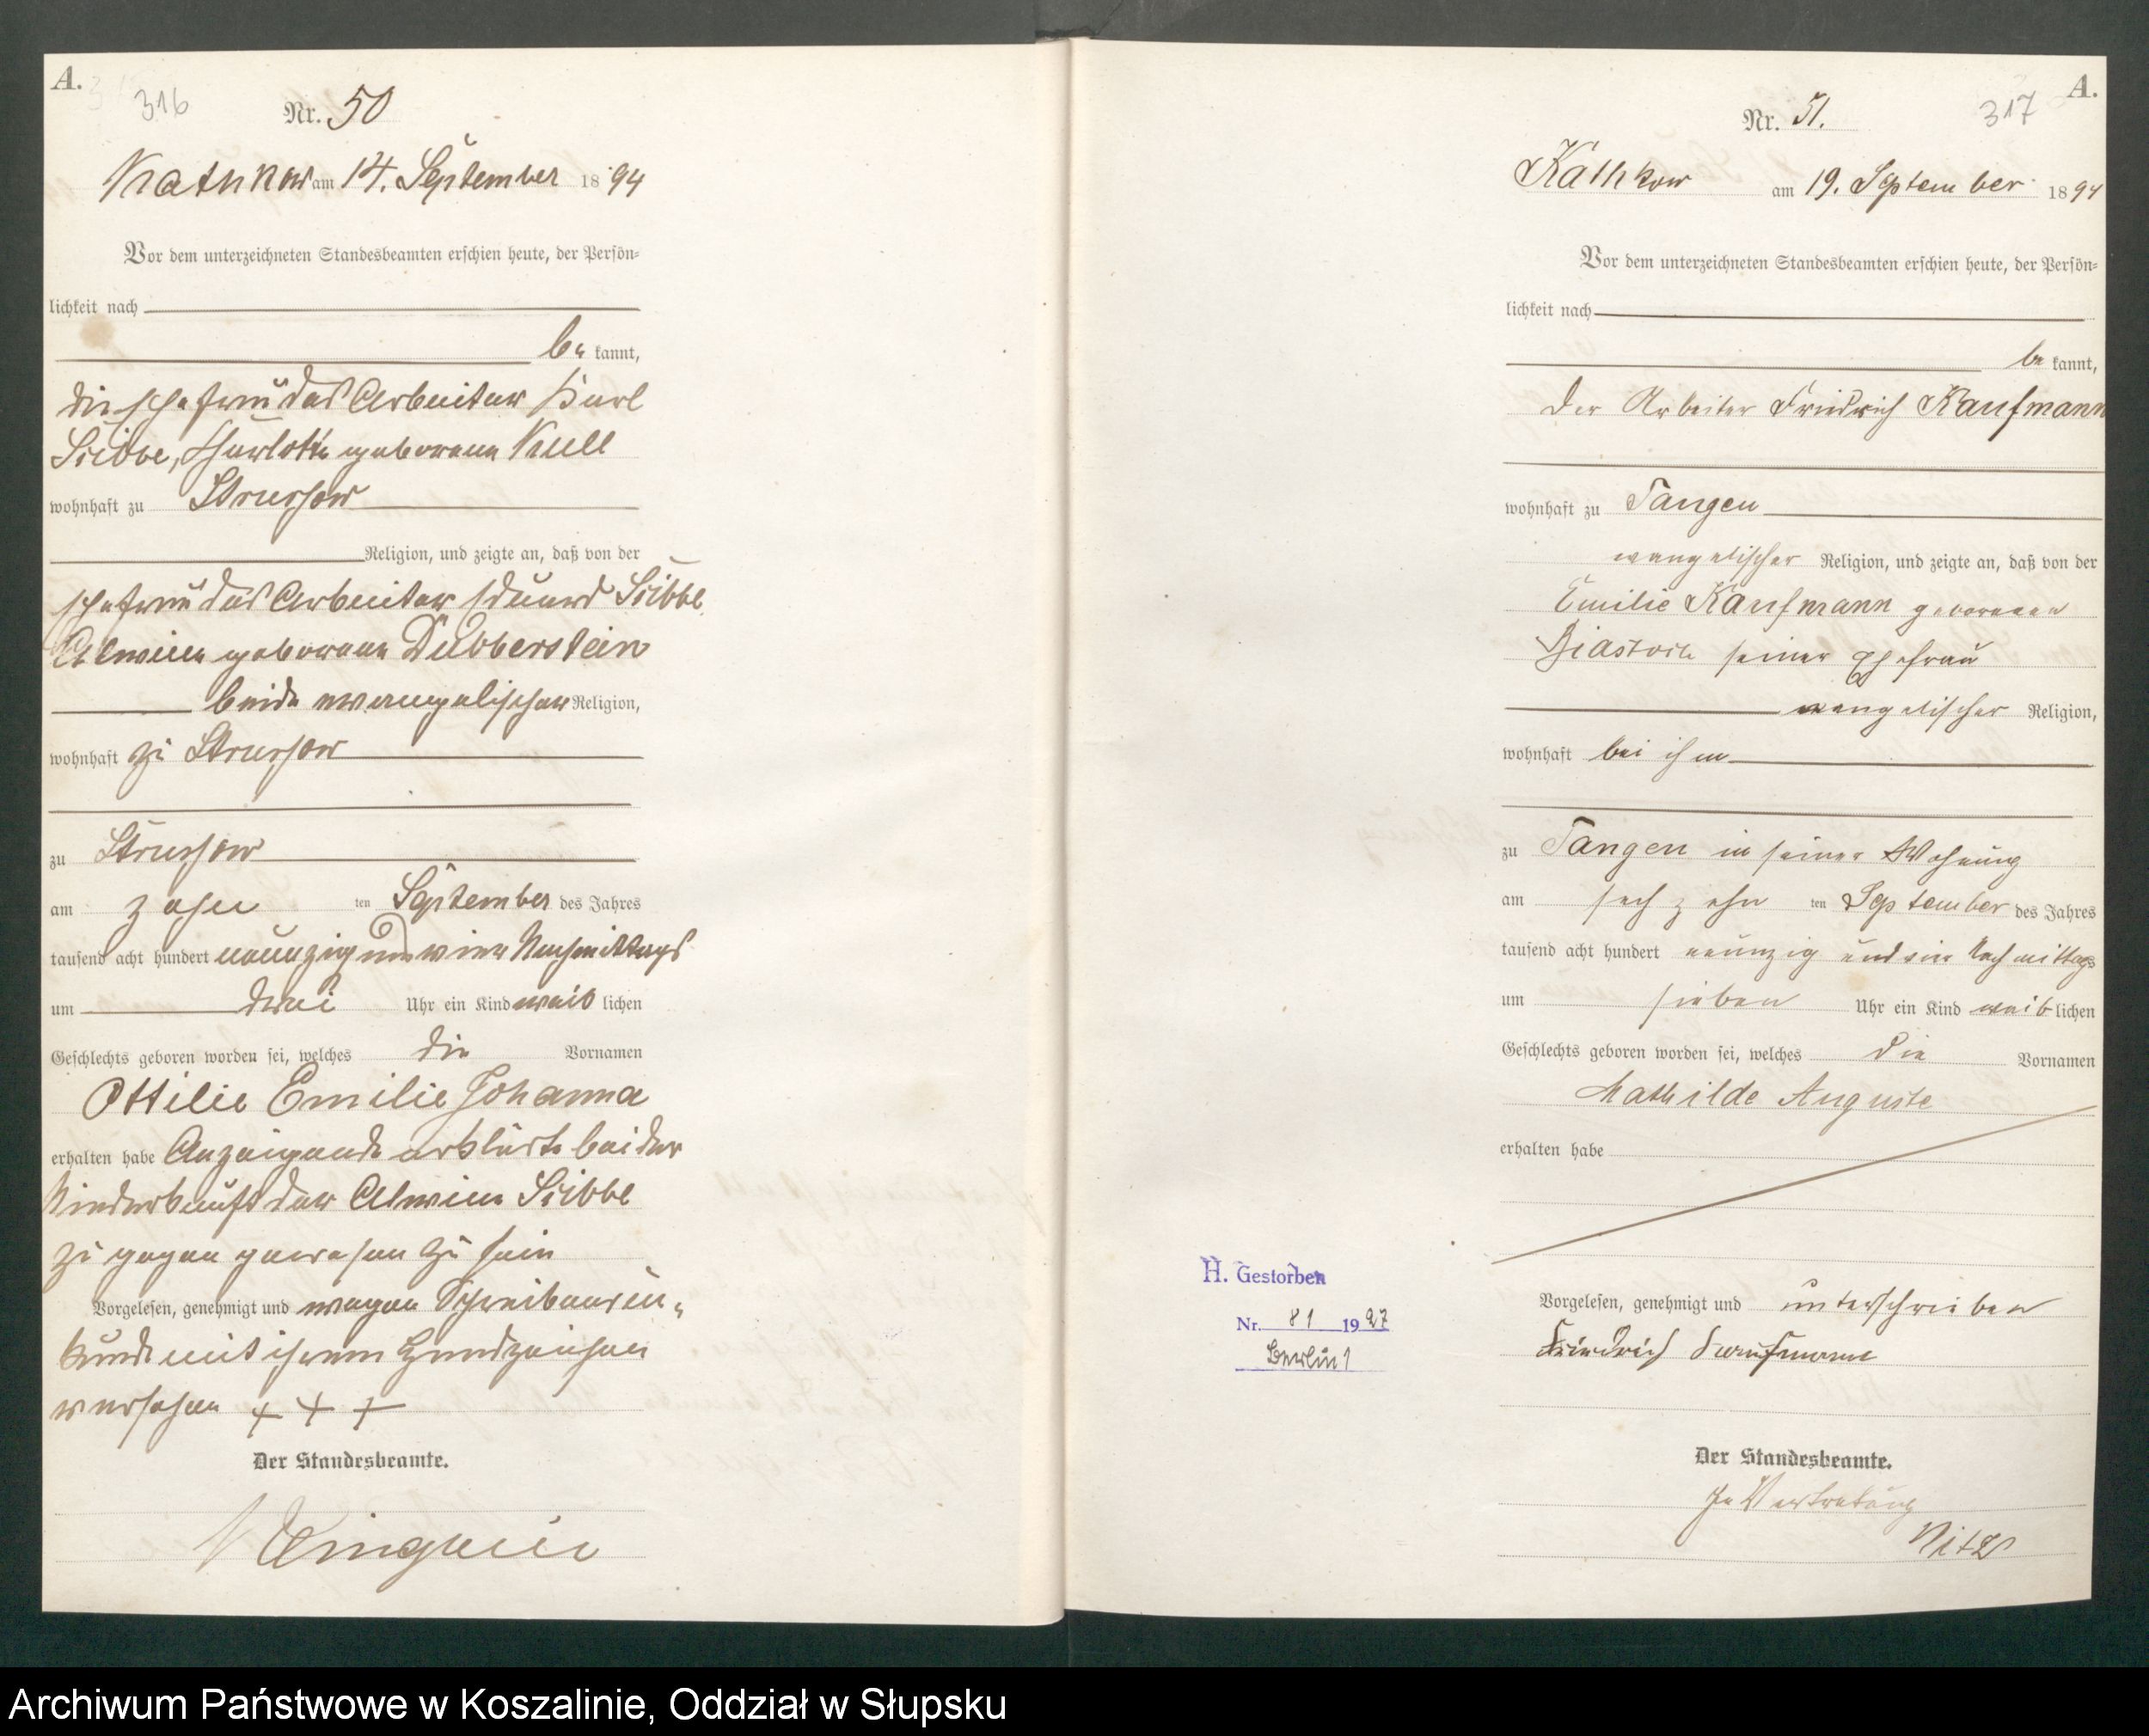 A.
316
Nr. 50
Kathkow am 14. September 1894
Vor dem unterzeichneten Standesbeamten erschien heute, der Persön=
lichkeit nach
be kannt,
die Ehefrau des Arbeiter Karl
Siebbe, Charlotte geborene Krull
wohnhaft zu Strussow
Religion, und zeigte an, daß von der
Ehefrau des Arbeiter Eduard Siebbe
Alwine geborene Dubberstein
beide evangelischer Religion,
wohnhaft zu Strussow
zu Strussow
am zehn ten September des Jahres
tausend acht hundert neunzig und vier Nachmittags
um drei Uhr ein Kind weib lichen
Geschlechts geboren worden sei, welches die Vornamen
Ottilie Emilie Johanna
erhalten habe Anzeigende erklärte bei der
Niederkunft der Alwine Siebbe
zu gegen gewesen zu sein
Vorgelesen, genehmigt und wegen Schreibensun=
kunde mit ihrem Handzeichen
versehen + + +
Der Standesbeamte.
A.
317
Nr. 51.
Kathkow am 19. September 1894
Vor dem unterzeichneten Standesbeamten erschien heute, der Persön=
lichkeit nach
be kannt,
Der Arbeiter Friedrich Kaufmann
wohnhaft zu Tangen
evangelischer Religion, und zeigte an, daß von der
Emilie Kaufmann geborenen
Biastoch seiner Ehefrau
evangelischer Religion,
wohnhaft bei ihm
zu Tangen in seiner Wohnung
am sechzehn ten September des Jahres
tausend acht hundert neunzig und vier Nachmittags
um sieben Uhr ein Kind weib lichen
Geschlechts geboren worden sei, welches die Vornamen
Mathilde Auguste
erhalten habe
Vorgelesen, genehmigt und unterschrieben
Friedrich Kaufmann
Der Standesbeamte.
In Vertretung
Nitz
H. Gestorben
Nr. 81 1927
Berlin 1
Archiwum Państwowe w Koszalinie, Oddział w Słupsku